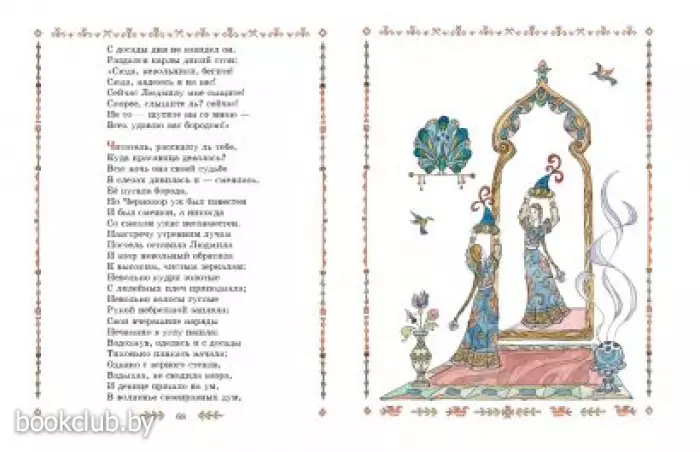 С досады дня не взвидел он.
Раздался карлы дикий стон:
«Сюда, невольники, бегите!
Сюда, надеюсь я на вас!
Сейчас Людмилу мне сыщите!
Скорее, слышите ль? сейчас!
Не то — шутите вы со мною —
Всех удавлю вас бородою!»
Читатель, расскажу ль тебе,
Куда красавица девалась?
Всю ночь она своей судьбе
В слезах дивилась и — смеялась.
Её пугала борода,
Но Черномор уж был известен
И был смешон, а никогда
Со смехом ужас несовместен.
Навстречу утренним лучам
Постель оставила Людмила
И взор невольный обратила
К высоким, чистым зеркалам;
Невольно кудри золотые
С лилейных плеч приподняла;
Невольно волосы густые
Рукой небрежной заплела;
Свои вчерашние наряды
Нечаянно в углу нашла;
Вздохнув, оделась и с досады
Тихонько плакать начала;
Однако с верного стекла,
Вздыхая, не сводила взора,
И девице пришло на ум,
В волненье своенравных дум,
68
bookclub.by
bookclub.by